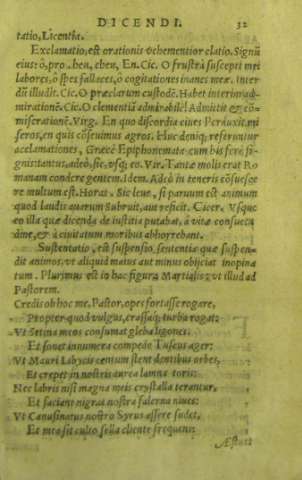 DICENDI. 32
tatio, Licentia.
Exclamatio, est orationis vehementior elatio. Signũ
eius: ô, pro, heu, eheu, En. Cic. O frustrà suscepti mei
labores, ô spes fallaces, ô cogitationes inanes meæ. Inter
dũ illudit. Cic. O præclarum custodẽ. Habet interim ad-
mirationẽ. Cic. O clementiã admirabilẽ! Admittit & cõ-
miserationẽ. Virg. En quo discordia ciues Perduxit mi
seros, en quîs cõseuimus agros. Huc deniq; referuntur
acclamationes, Græcè Epiphonemata cum bis ferè si-
gnis tantus, adeò, sic, vsq; eo. Vir. Tantæ molis erat Ro
manam condere gentem. Idem. Adeò in teneris cõsuesce
re multum est. Horat. Sic leue, si paruum est animum
quod laudis auarum Subruit, aut reficit. Cicer. Vsque
eo illa quæ dicenda de iustitia putabat, à vita consueta
&me, & à ciuitatum moribus abhorrebant.
Sustentatio, est suspensio sententiæ quæ suspen-
dit animos, vt aliquid maius aut minus obijciat inopina
tum. Plurimus est in hac figura Martialis, vt illud ad
Pastorem.
Credis ob hoc me, Pastor, opes fortasse rogare,
Propter quod vulgus, crassaq; turba rogat:
Vt Setina meos consumat gleba ligones:
Et sonet innumera compede Tuscus ager:
Vt Mauri Libycis centum stent dentibus orbes,
Et crepet in nostris aurea lamna toris:
Nec labris nisi magna meis crystalla terantur,
Et faciant nigras nostra falerna niues:
Vt Canusinatus nostro Syrus assere sudet,
Et mea sit culto sella cliente frequens:
Æstuet